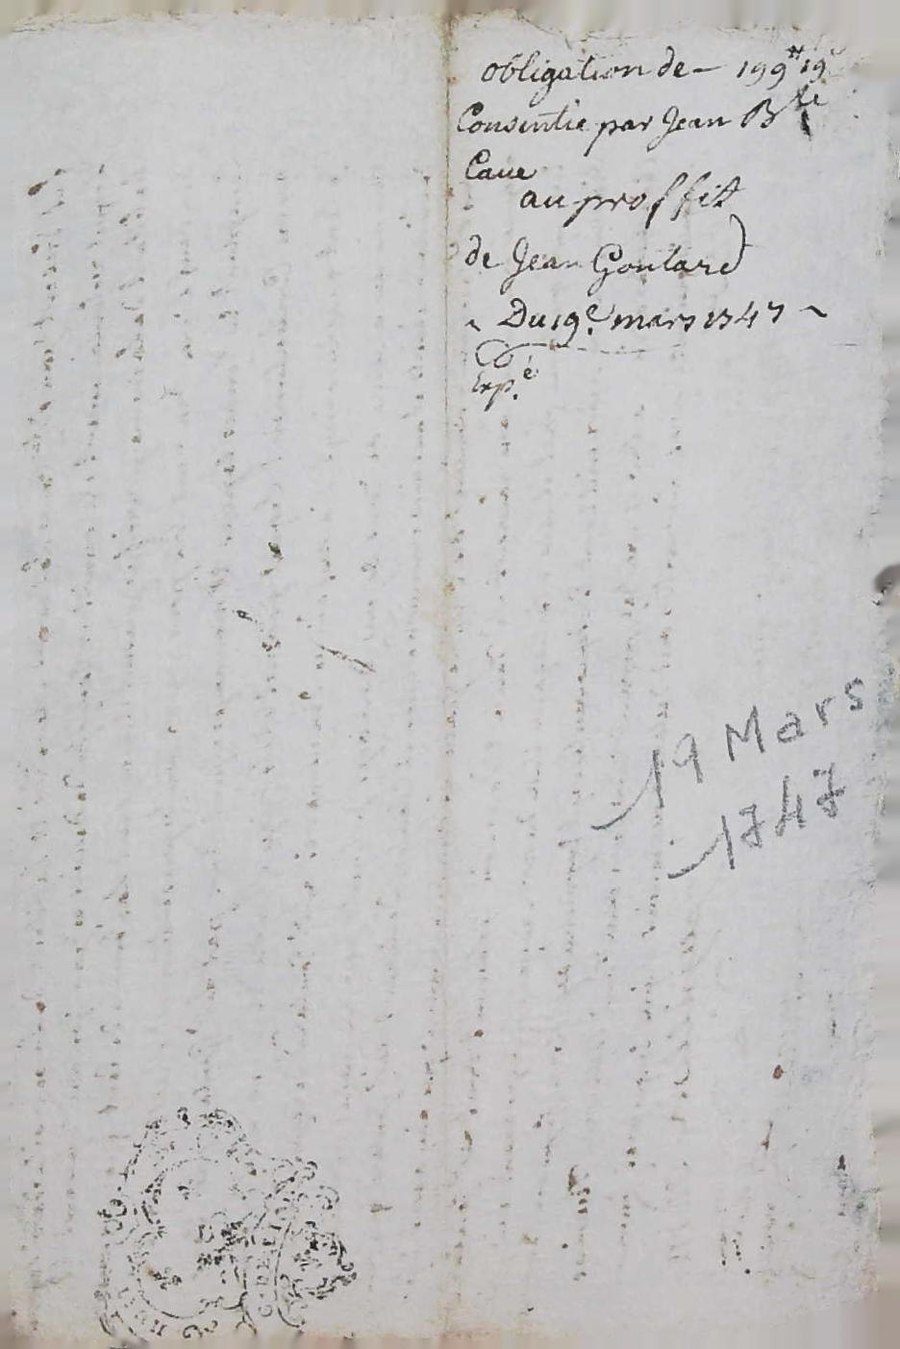 obligation de – 199# 19s
Consentie par Jean Bte
Caue
au proffit
de Jean Goulard
Du 19e. mars 1747
Expé.
19 Mars
1747